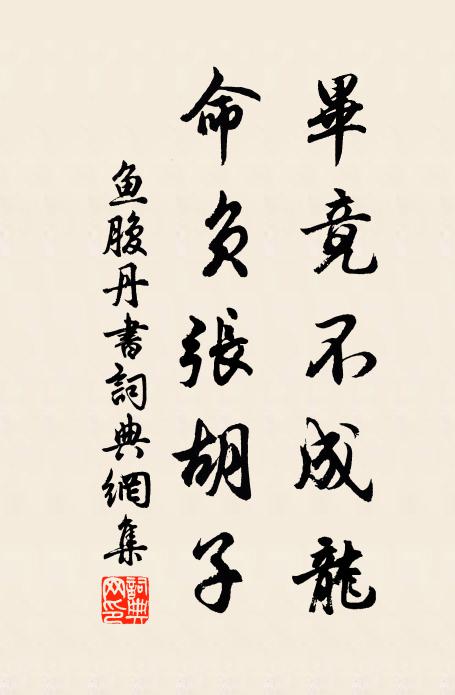 畢竟不成龍
命負張胡子
魚腹丹書詞典網集
詞典網印